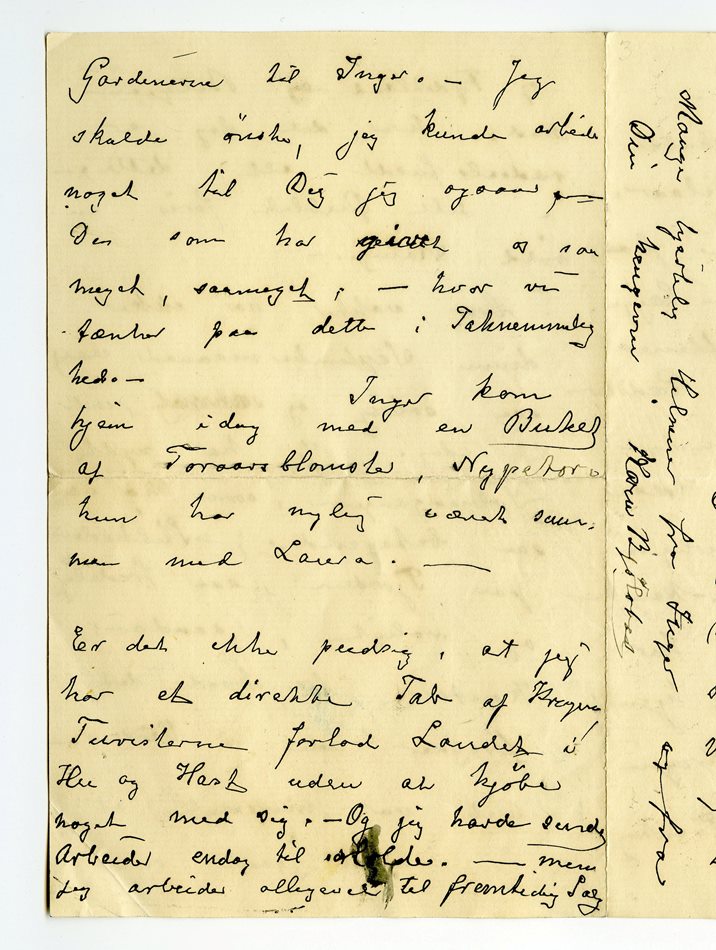 Gardinerne til Inger. – Jeg
skulde ønske, jeg kunde arbeide
noget til Dig jeg ogsaa, –
Du som har givet os saa
meget, saameget, – hvor vi
tænker paa dette i Taknemmelig
hed. –
Inger kom
hjem idag med en Buket
af Foraarsblomster, Nypetorn
hun har nylig været sam-
men med Laura. –
Er det ikke pudsig, at jeg
har et direkte Tab af Krigen,
Turisterne forlod Landet i
Hu og Hast uden at kjøbe
noget med sig. – Og jeg havde sendt
Arbeider endog til – men
jeg arbeider alligevel til fremtidig Salg
Mange hjertelig Hilsener fra Inger og fra
Din hengivne Karen Bjølstad